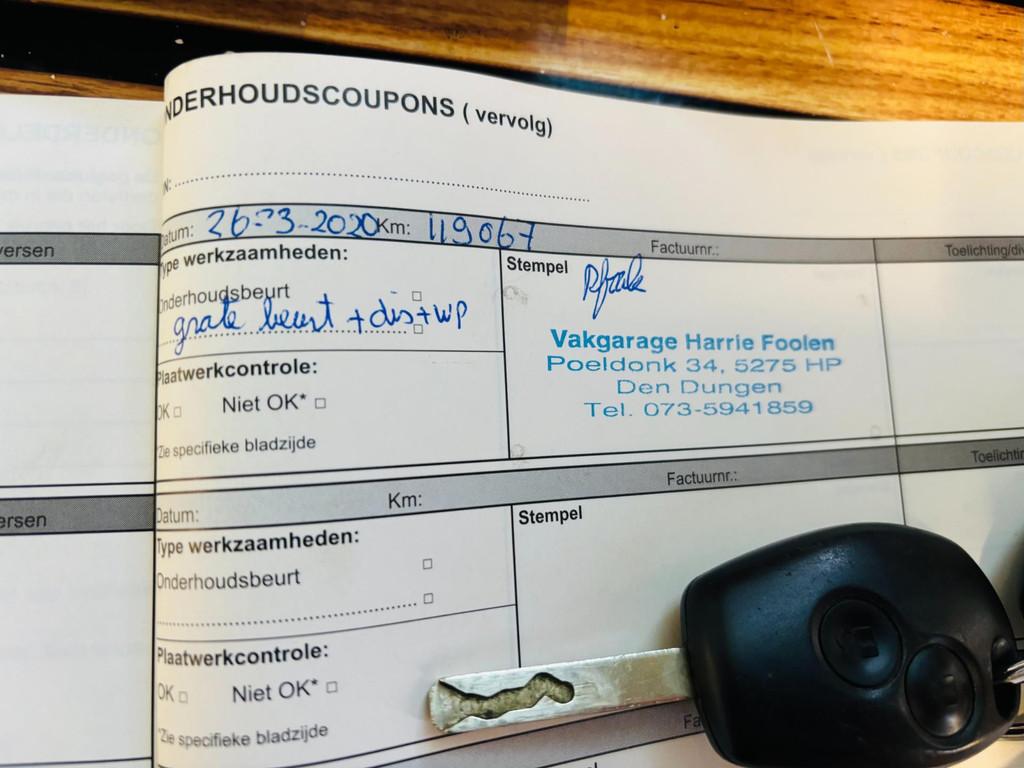 NDERHOUDSCOUPONS ( vervolg)
N:
Datum: 26-3-2020 Km: 119067 Factuurnr.: Toelichting/di
Type werkzaamheden:
Onderhoudsbeurt
grote beurt + dis + WP
Stempel
Vakgarage Harrie Foolen
Poeldonk 34, 5275 HP
Den Dungen
Tel. 073-5941859
Plaatwerkcontrole:
OK Niet OK*
*Zie specifieke bladzijde
versen
Datum: Km: Factuurnr.: Toelichtin
Type werkzaamheden:
Onderhoudsbeurt
Stempel
Plaatwerkcontrole:
OK Niet OK*
*Zie specifieke bladzijde
ersen
Fa
Stempel